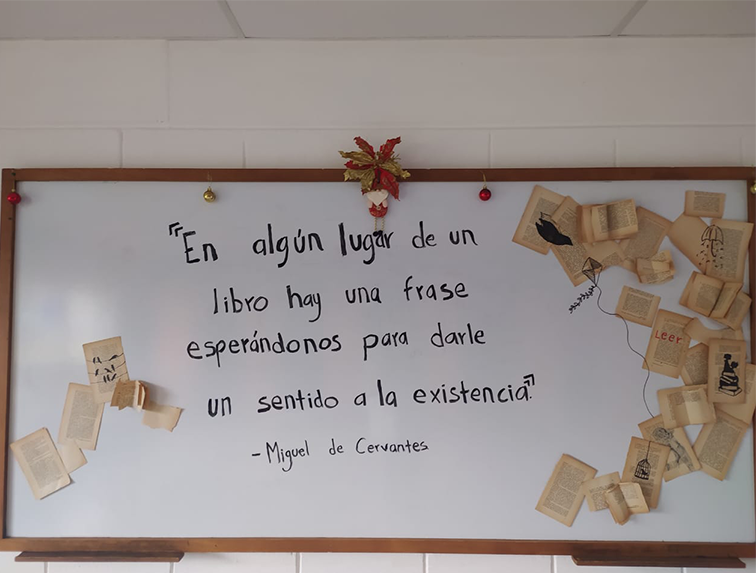 "En algún lugar de un
libro hay una frase
esperándonos para darle
un sentido a la existencia".
- Miguel de Cervantes
Leer